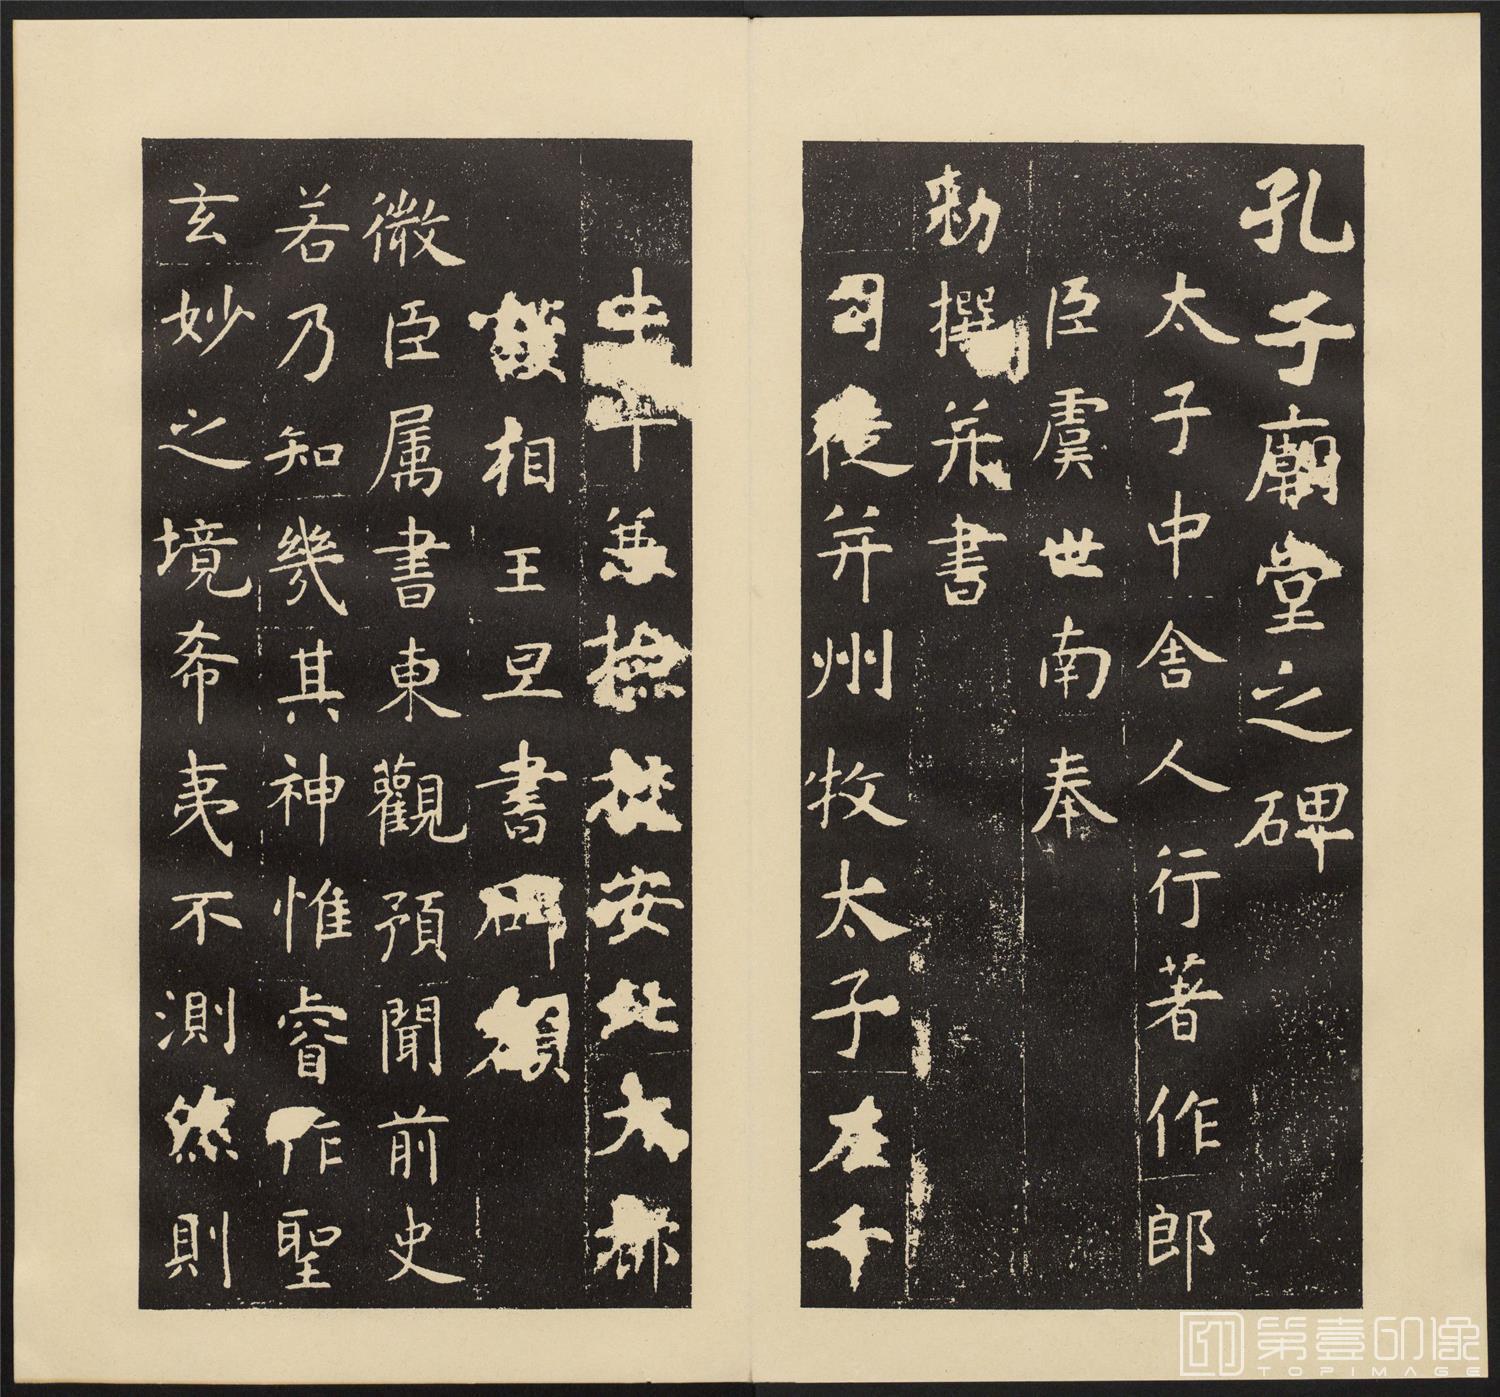 孔子廟堂之碑
太子中舍人行著作郎
臣虞世南奉
勅撰并書
司徒并州牧太子左千
牛率兼撿挍安北大都
護相王旦書碑額
微臣属書東觀預聞前史
若乃知幾其神惟睿作聖
玄妙之境希夷不測然則
第壹印像
TOPIMAGE